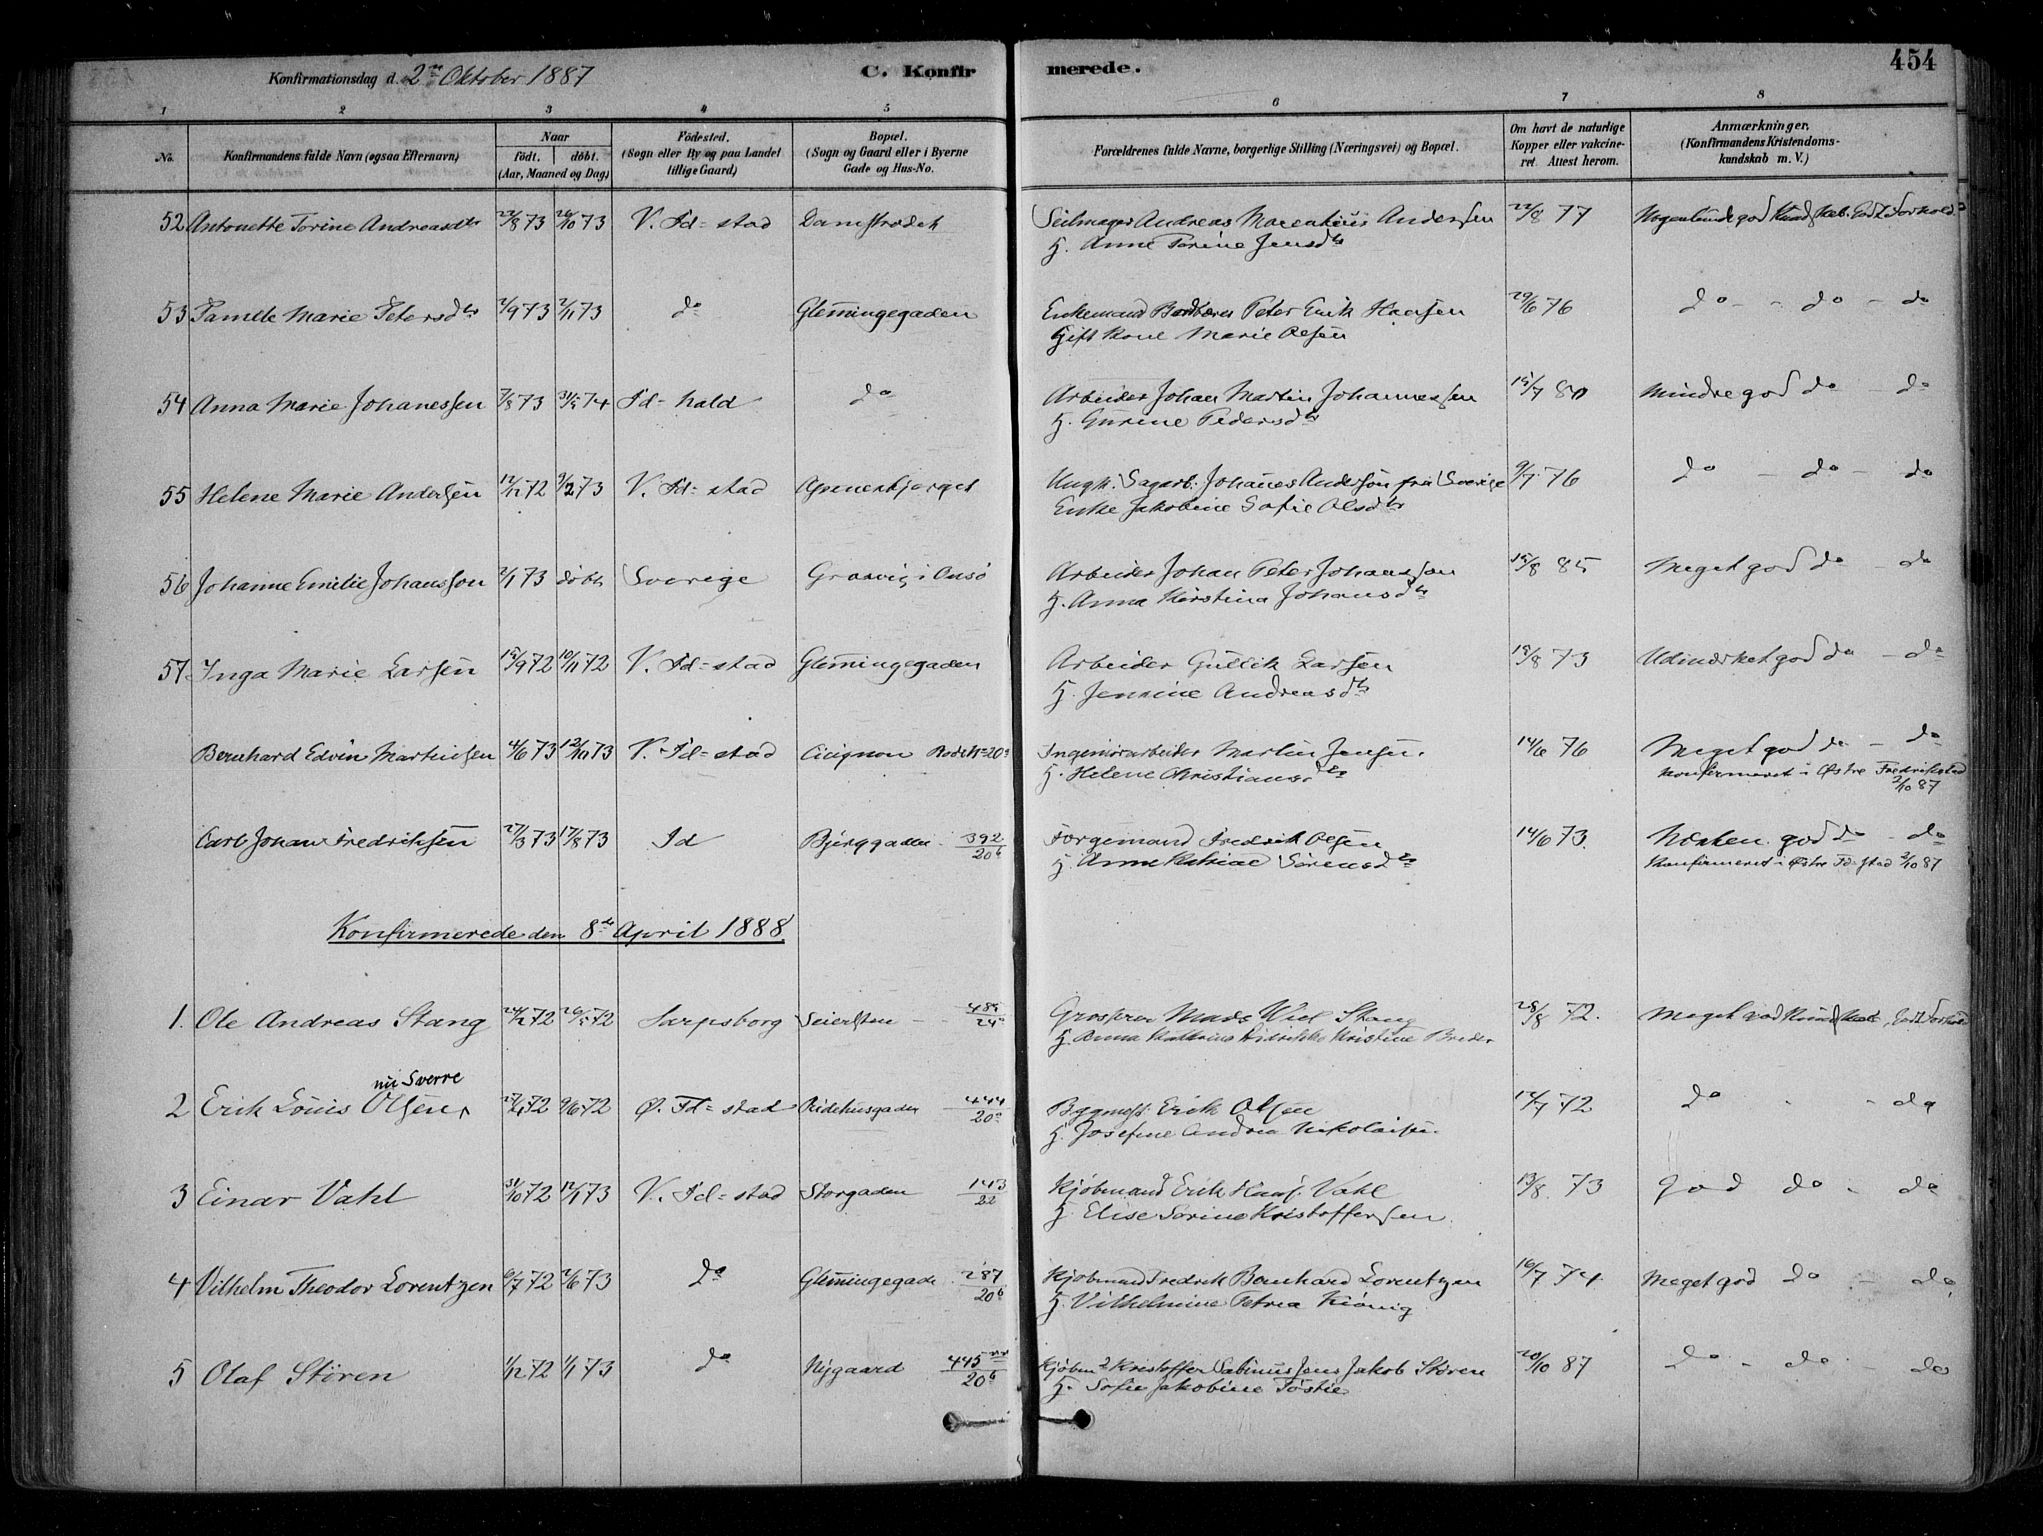 454
Konfirmationsdag d. 2den Oktober 1887 C. Konfirmerede.
1 2 3 4 5 6 7 8
No. Konfirmandens fulde Navn (ogsaa Efternavn) Naar født. døbt. (Aar, Maaned og Dag) Fødested. (Sogn eller By og paa Landet tillige Gaard) Bopæl. (Sogn og Gaard eller i Byerne Gade og Hus-No. Forældrenes fulde Navne, borgerlige Stilling (Næringsvei) og Bopæl. Om havt de naturlige Kopper eller vakcineret. Attest herom. Anmærkninger. (Konfirmandens Kristendomskundskab m. V.)
52 Antonette Torine Andreasdtr 22/8 73 26/10 73 V. Fd=stad Damstrædet Seilmager Andreas Andersen 22/8 77 Nogenlunde god Kundskab. Godt Forhold
H. Anne Torine Jensdtr
53 Pamele Marie Petersdtr 2/9 73 2/11 73 do Glemmingegaden Enkemand Peter Erik Hansen 29/6 76 do - do - do
Gift Kone Marie Olsen
54 Anna Marie Johanessen 7/8 73 31/5 74 Fd=hald do Arbeider Johan Martin Johannessen 15/7 80 Mindre god do - do
H. Gurine Pedersdtr
55 Helene Marie Andersen 12/12 72 9/2 73 V. Fd=stad Apenesbjerget Ungk. Sagarb. Johanes Anderson fra Sverige 9/7 76 do - do - do
Enke Jakobine Sofie Olsdtr
56 Johanne Emelie Johansson 2/1 73 døbt Sverige Graavig i Onsø Arbeider Johan Peter Johansson 15/8 85 Meget god do - do
H. Anna Kirstina Johansdtr
57 Inga Marie Larsen 15/9 72 10/11 72 V. Fd=stad Glemmingegaden Arbeider Gullik Larsen 18/8 73 Udmærket god do - do
H. Jennine Andreasdtr
Bernhard Edvin Martinsen 4/6 73 12/10 73 V. Fd=stad Cicignon Rode No 20a Ingeniørarbeider Martin Jensen. 14/6 76 Meget god do - do
H. Helene Christiansdtr Konfirmeret i Østre Fredrikstad 2/10 87
Carl Johan Fredriksen 27/3 73 17/8 73 Id Bjerggaden 392/20b Færgemand Fredrik Olsen 14/6 73. Næsten god do - do
H. Anne Sørensdtr Konfirmeret i Østre Fd=stad 2/10 87
Konfirmerede den 8de April 1888
1. Ole Andreas Stang 24/2 72 26/5 72 Sarpsborg Seiersten 485/24a Grosserer Mads Wiel Stang 28/8 72. Meget god Kundskab, Godt Forhold
H. Anna Kathrine Didrikke Kristine Breder
nu Sverre
2 Erik Louis Olsen 27/4 72 9/6 72 Ø. Fd=stad Ridehusgaden 444/20a Bygmest. Erik Olsen 12/7 72 do - do
H. Josefine Andrea Nikolaisen.
3 Einar Vahl 31/10 72 12/1 73 V. Fd=stad Storgaden 143/22 Kjøbmand Erik Hans. Vahl 13/8 73 God do - do
H. Elise Sorine Kristoffersen.
4 Vilhelm Theodor Lorentzen 6/7 72 2/6 73 do Glemmingegade 287/20b Kjøbmand Fredrik Bernhard Lorentzen 16/7 74. Meget god do - do
H. Vilhelmine Petrea Kiønig
5 Olaf Støren 1/12 72 1/1 73 do Nygaard 445/20b Kjøbmd Kristoffer Sabinus Jens Jakob Støren 20/10 87 do - do do
H. Sofie Jakobine Tostie